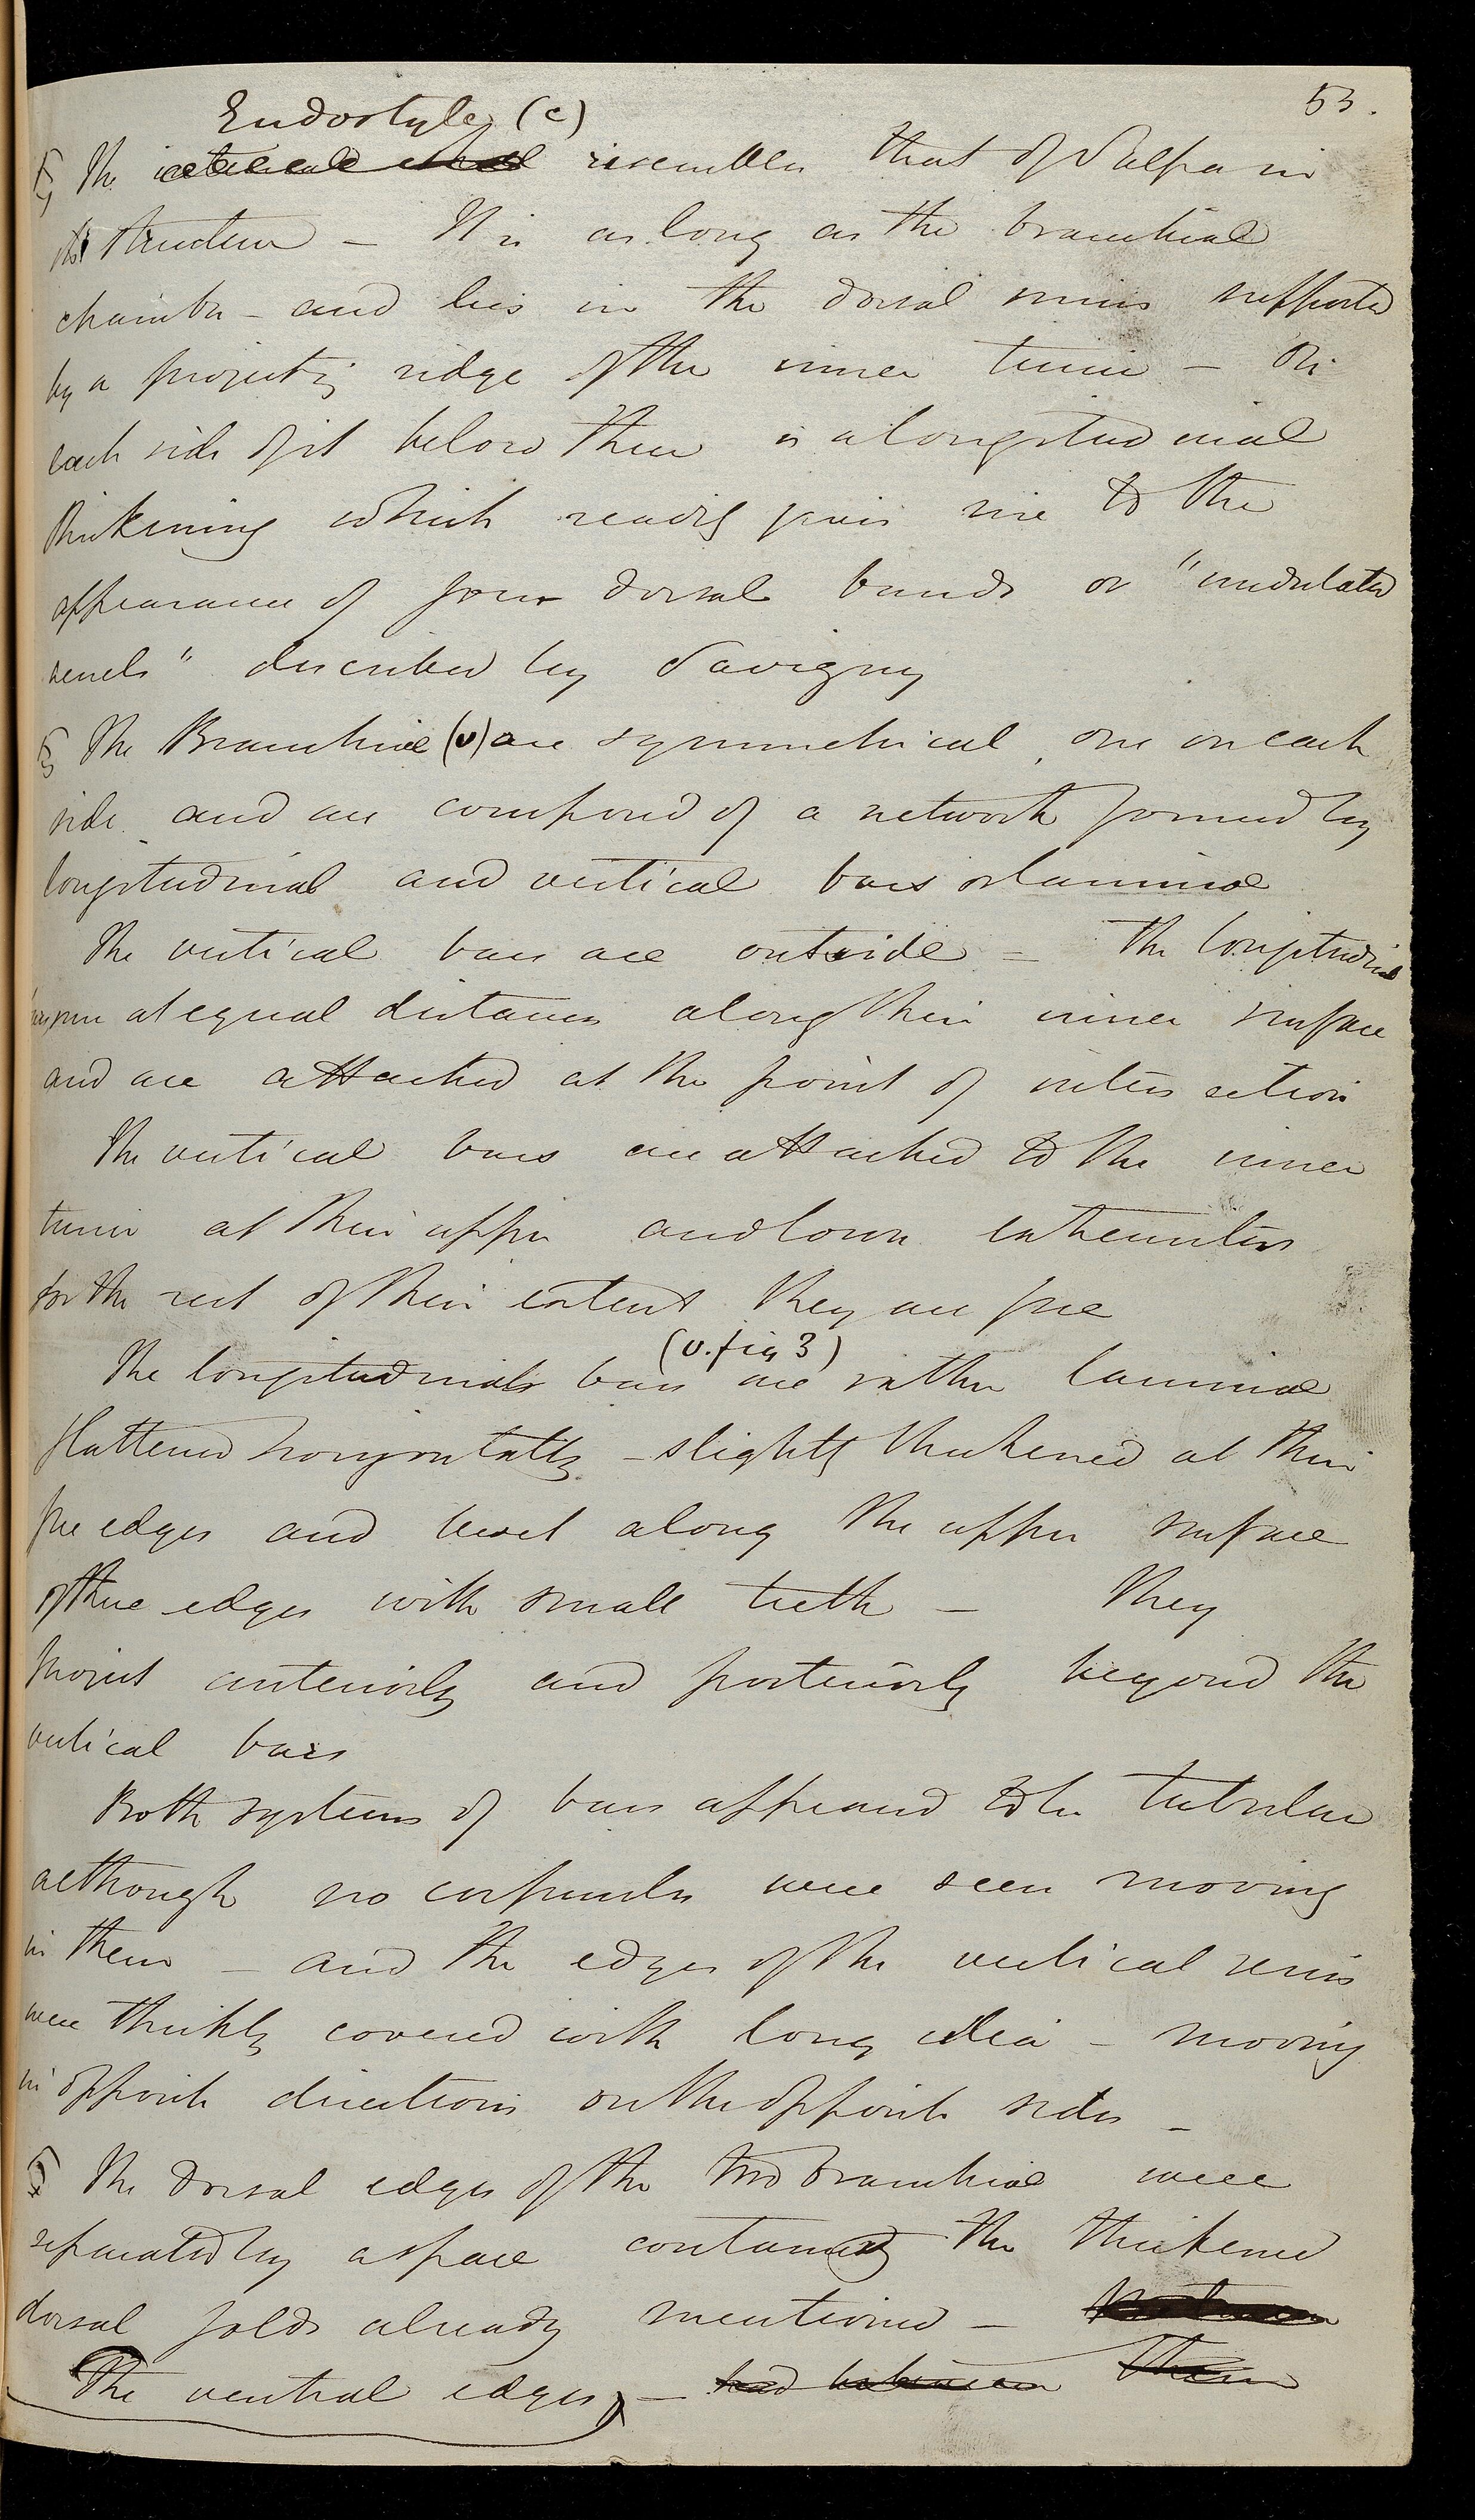 53.
Endostyle (c)
§ The resembles that of Salpa in
its structure – It is as long as the branchial
chamber – and lies in the dorsal sinus supported
by a projecting ridge of the inner tunic – On
each side of it below there is a longitudinal
thickening which readily gives rise to the
appearance of four dorsal bands or "undulated
vessels" described by Savigny
§ The Branchiae (v) are symmetrical, one on each
side and are composed of a network formed by
longitudinal and vertical bars or laminae
The vertical bars are outside – The longitudinal
at equal distances along their inner surface
and are attached at the point of intersection
The vertical bars are attached to the inner
tunic at their upper and lower extremities
for the rest of their extent they are free
(v. fig 3)
The longitudinal bars are rather laminae
flattened horizontally – slightly thickened at their
free edges and beset along the upper surface
of these edges with small teeth – They
project anteriorly and posteriorly beyond the
vertical bars
Both systems of bars appeared to be tubular
although no corpuscles were seen moving
in them – and the edges of the vertical
were thickly covered with long cilia – moving
in opposite directions on the opposite sides –
§ The dorsal edges of the two branchiae were
separated by a space containing the thickened
dorsal folds already mentioned – Between
The ventral edges – had between them